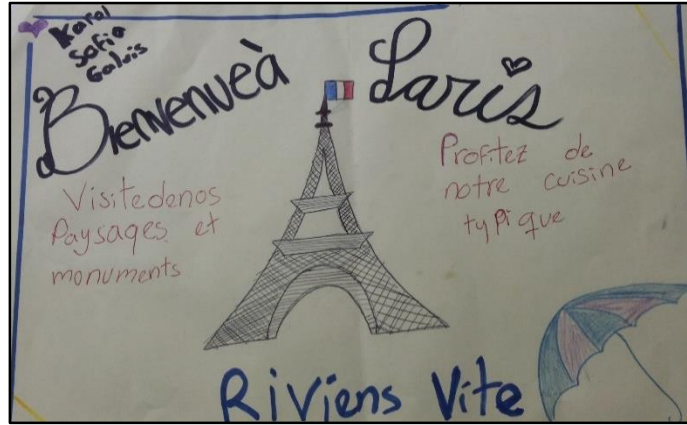 Karol
Sofia
Galvis
Bienvenue à Paris
Visitedenos
Paysages et
monuments
Profitez de
notre cuisine
typique
Riviens Vite